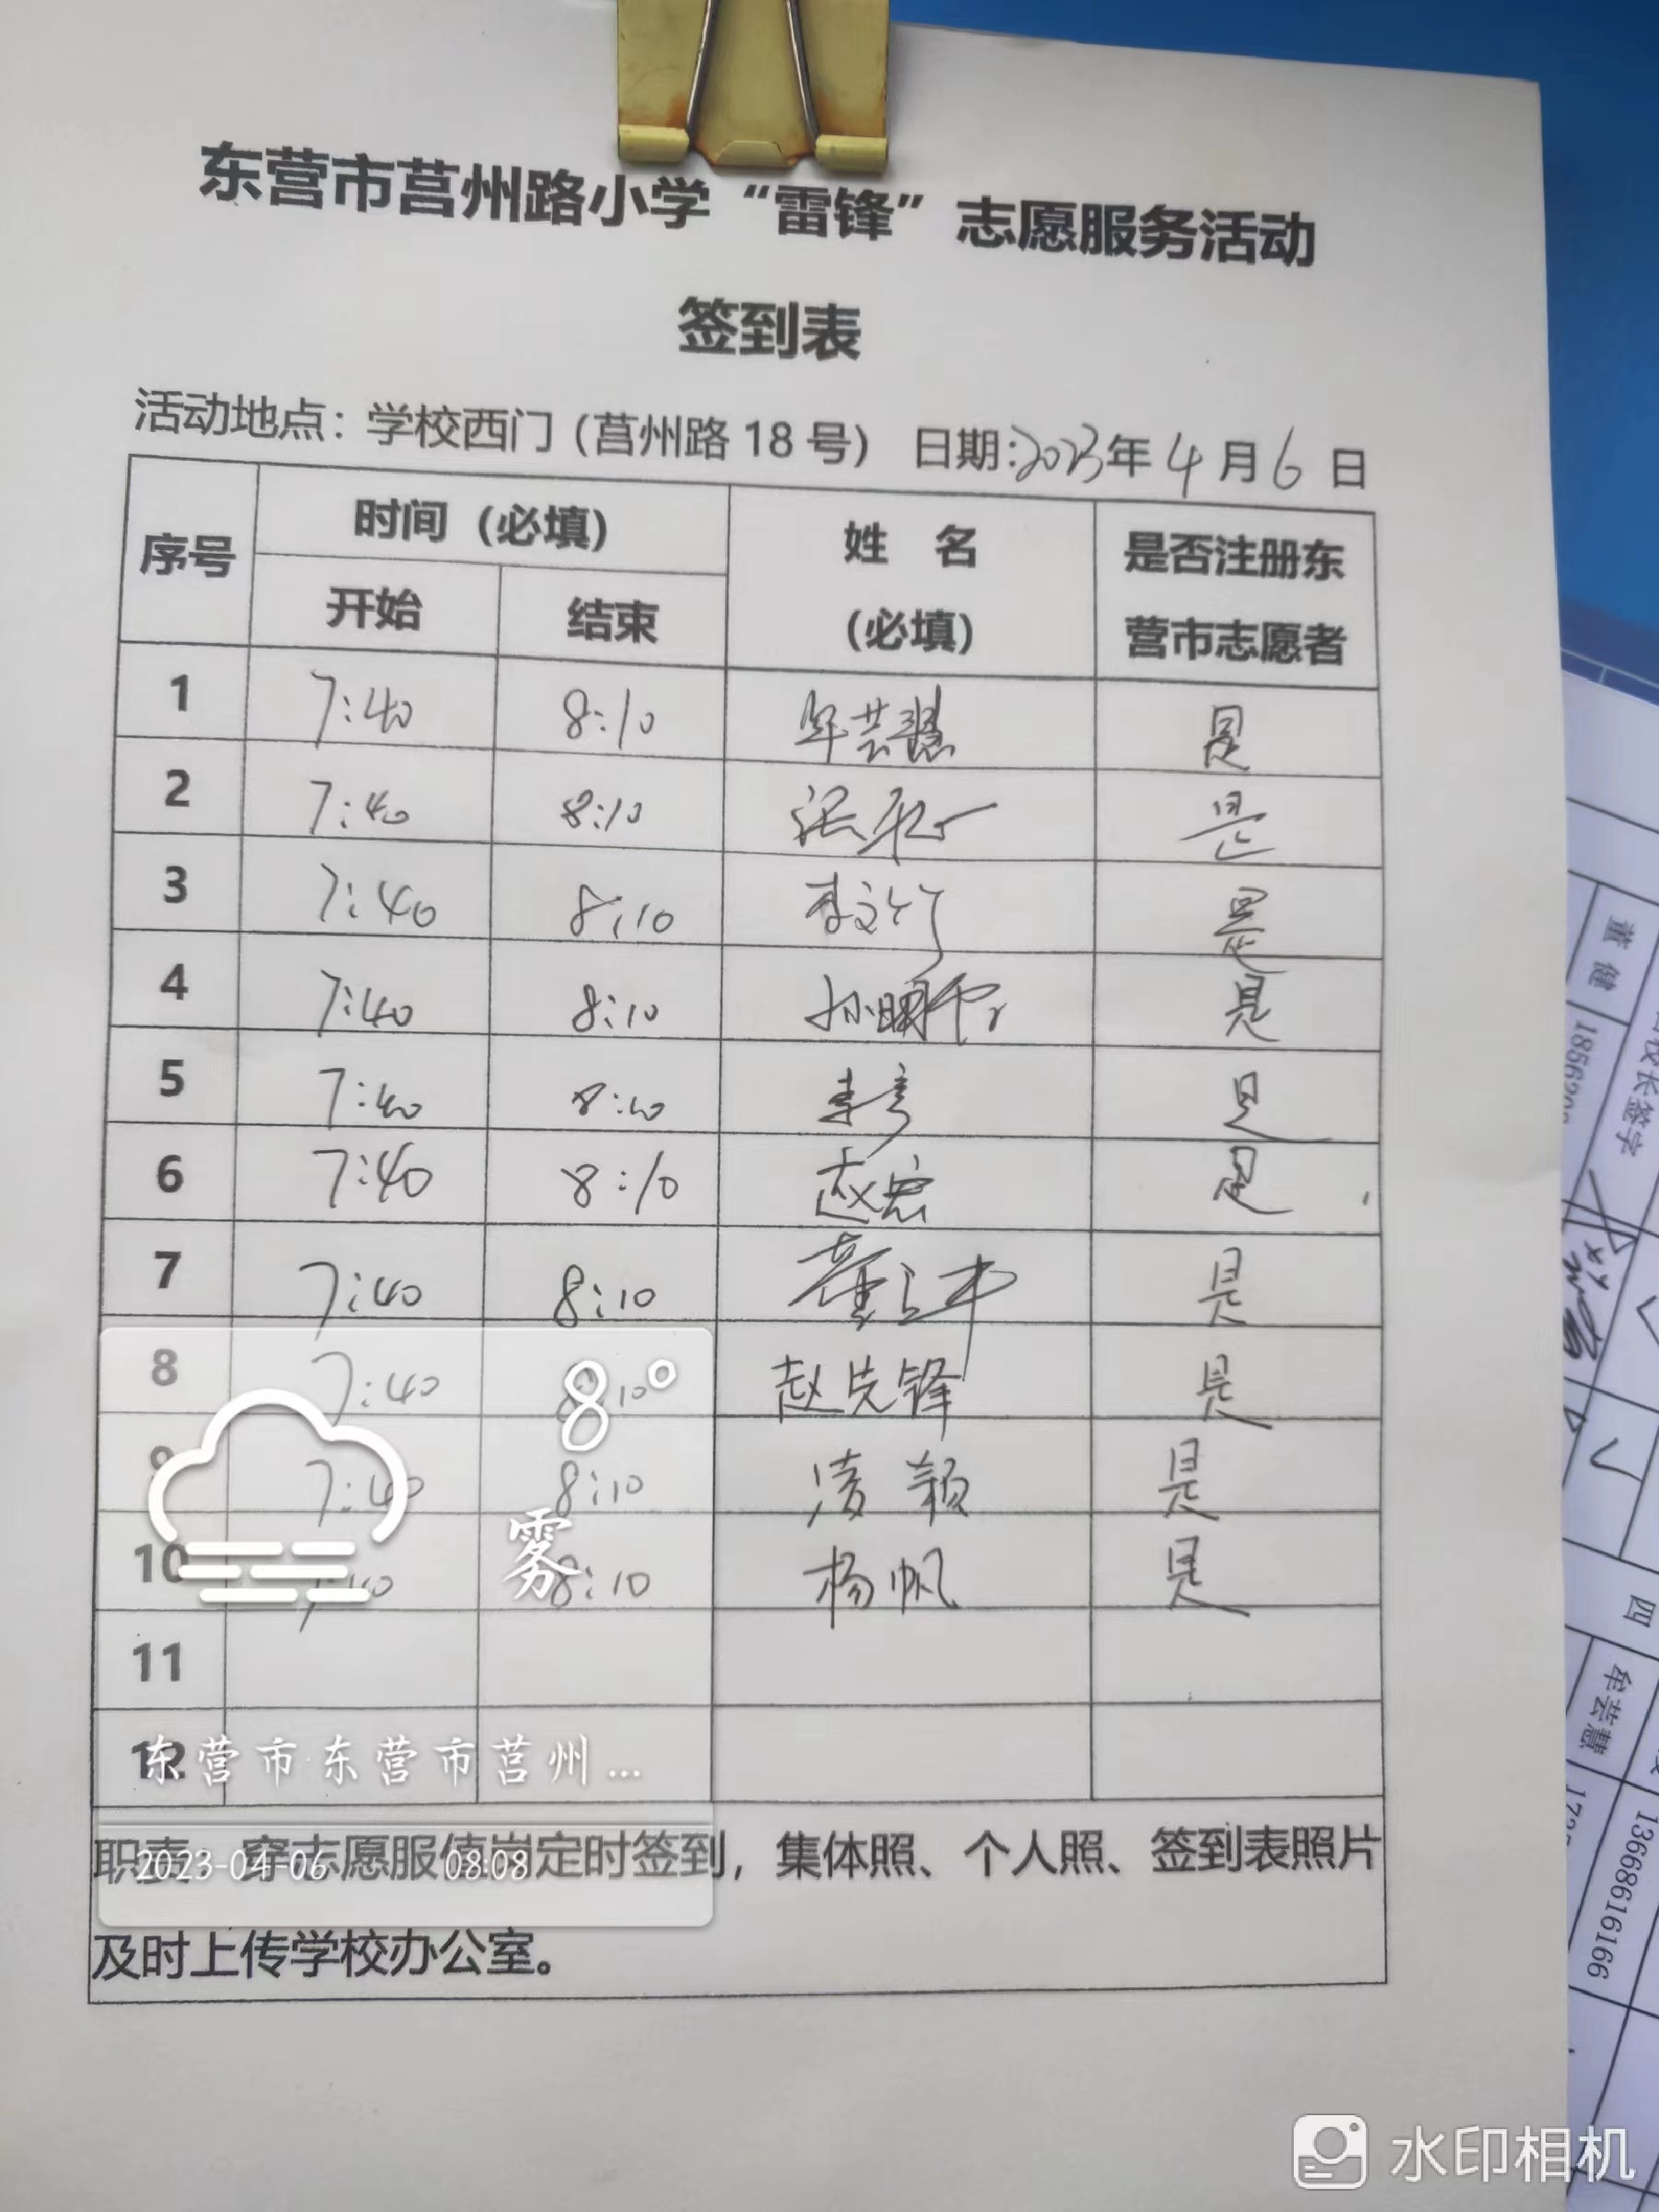 东营市莒州路小学“雷锋”志愿服务活动
签到表
活动地点：学校西门（莒州路18号） 日期：2023年4月6日
序号 时间（必填） 姓 名（必填） 是否注册东营市志愿者
开始 结束
1 7:40 8:10 牟芸慧 是
2 7:40 8:10 是
3 7:40 8:10 李文竹 是
4 7:40 8:10 是
5 7:40 8:10 是
6 7:40 8:10 赵宏 是
7 7:40 8:10 是
8 7:40 8:10 赵先锋 是
9 7:40 8:10 凌颖 是
10 7:40 8:10 杨帆 是
11
12
职责：穿志愿服值岗定时签到，集体照、个人照、签到表照片
及时上传学校办公室。
8°
雾
东营市·东营市莒州...
2023-04-06 08:08
董健
校长签字
四
牟芸慧
13668616166
水印相机